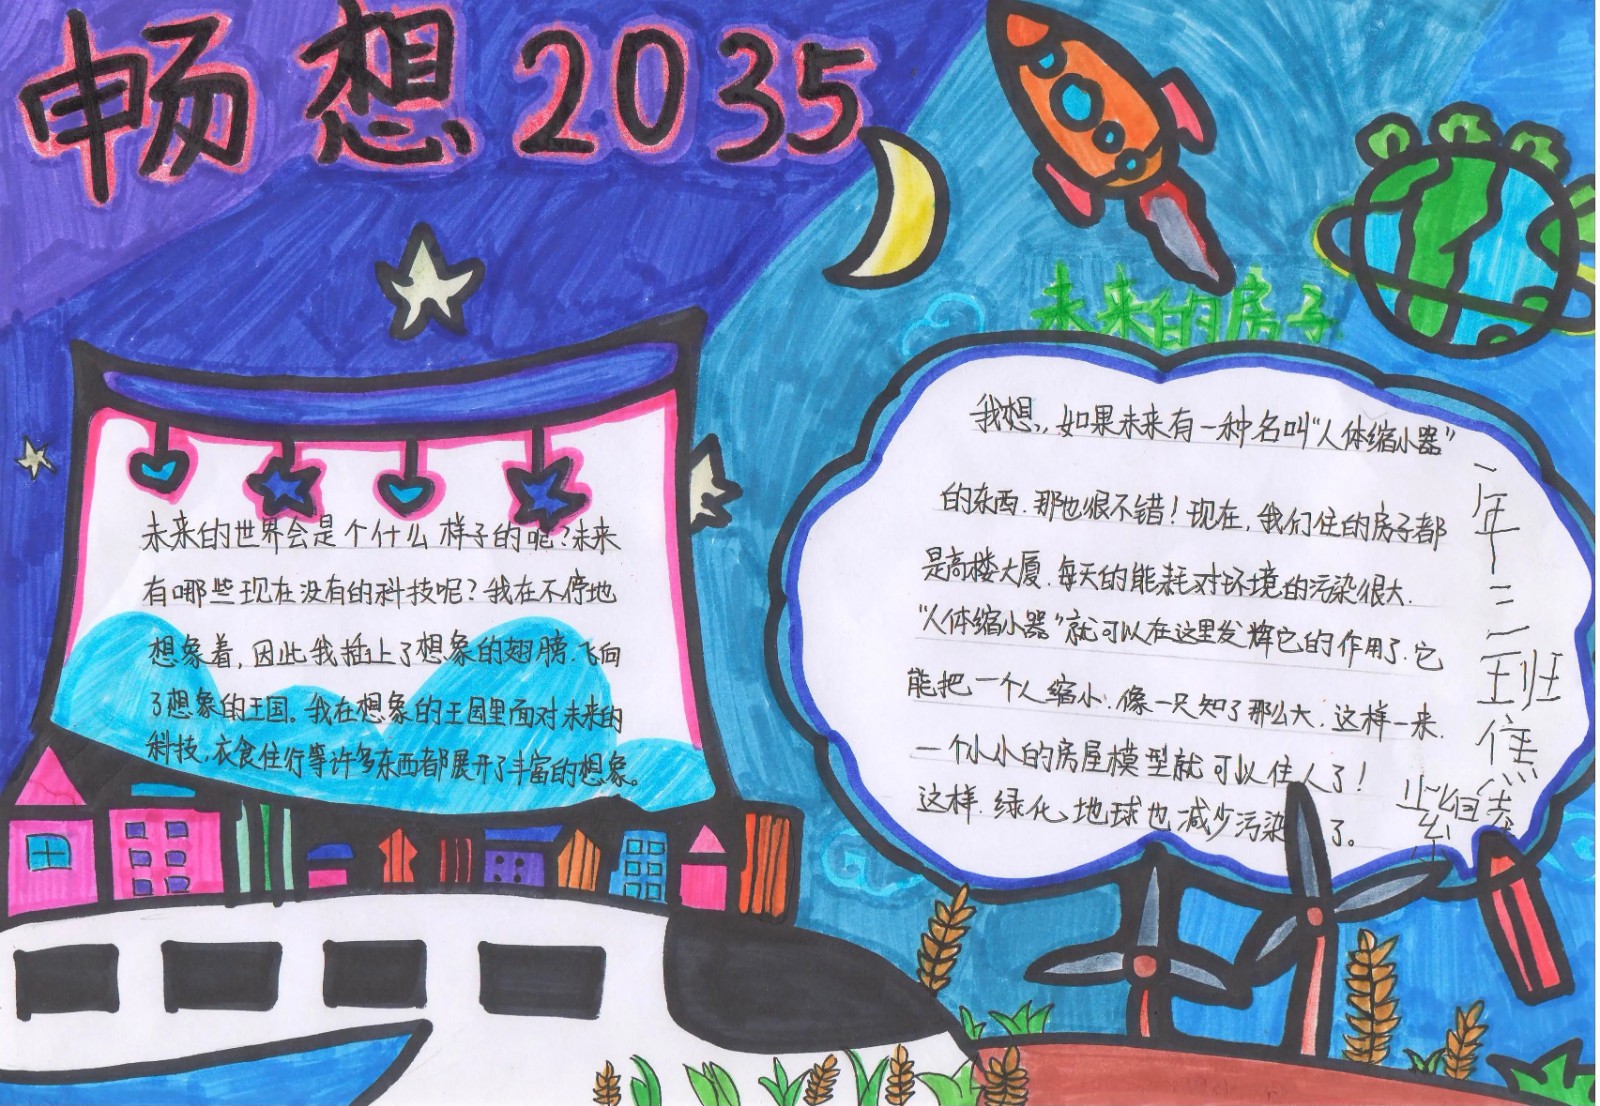 畅想2035
未来的世界会是个什么样子的呢?未来
有哪些现在没有的科技呢?我在不停地
想象着,因此我插上了想象的翅膀.飞向
了想象的王国。我在想象的王国里面对未来的
科技,衣食住行等许多东西都展开了丰富的想象。
未来的房子
我想,,如果未来有一种名叫“人体缩小器”
的东西.那也很不错!现在,我们住的房子都
是高楼大厦.每天的能耗对环境的污染很大.
“人体缩小器”就可以在这里发辉它的作用了.它
能把一个人缩小.像一只知了那么大.这样一来.
一个小小的房屋模型就可以住人了!
这样.绿化地球也减少污染了。
一年三班